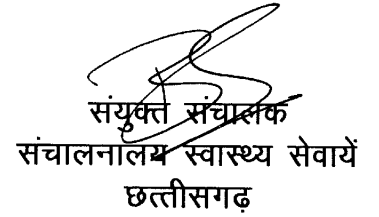 संयुक्त संचालक
संचालनालय स्वास्थ्य सेवायें
छत्तीसगढ़